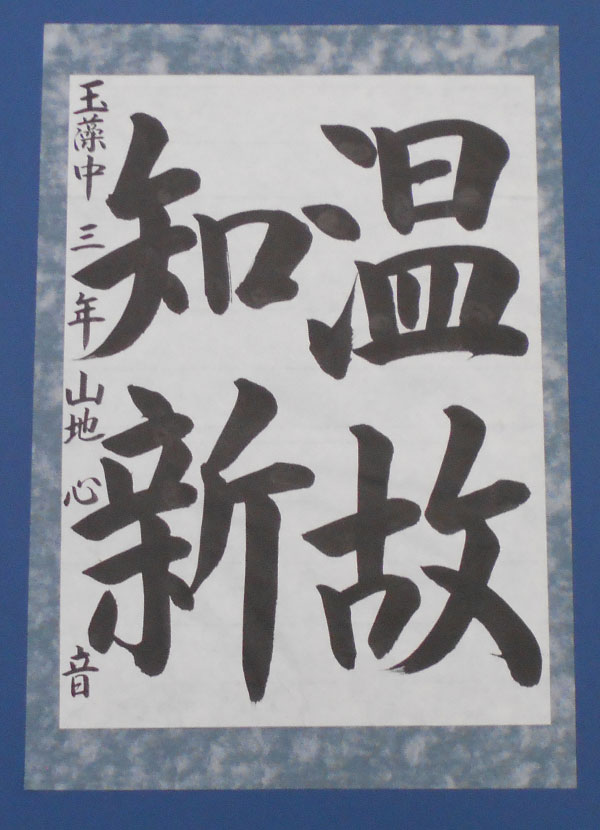 温故
知新
玉藻中 三年 山地 心音